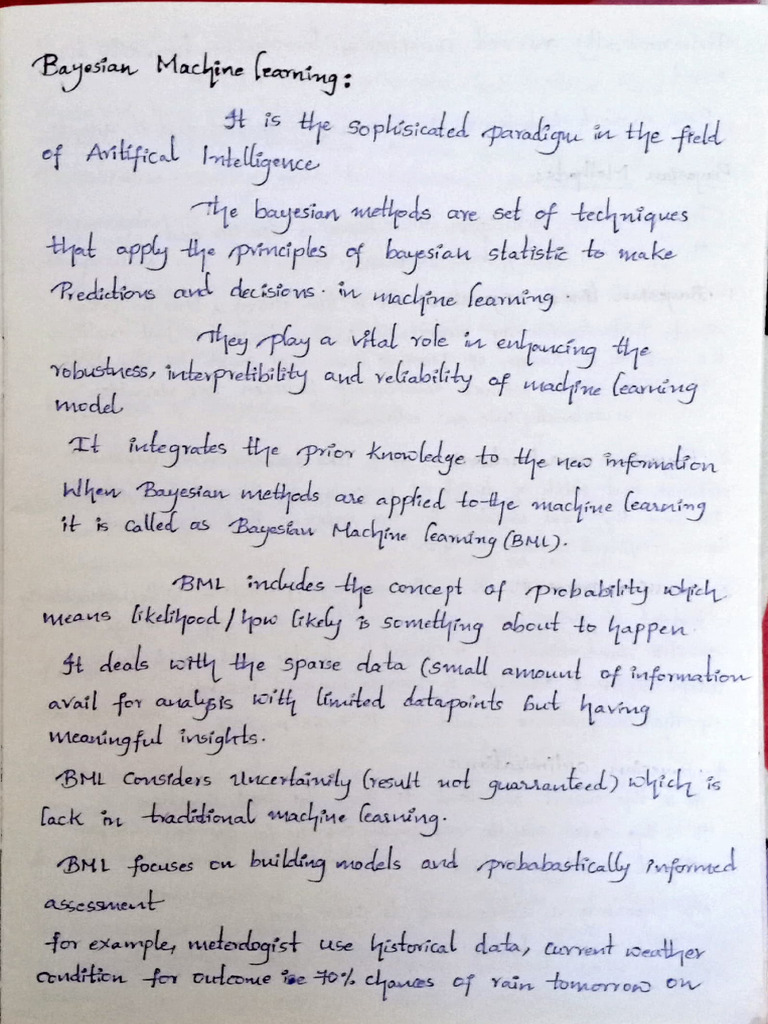 Bayesian Machine learning:
It is the sophisicated paradigm in the field
of Aritifical Intelligence
The bayesian methods are set of techniques
that apply the principles of bayesian statistic to make
Predictions and decisions. in machine learning.
They play a vital role in enhancing the
robustness, interpretibility and reliability of machine learning
model
It integrates the prior knowledge to the new information
When Bayesian methods are applied to the machine learning
it is called as Bayesian Machine learning (BML).
BML includes the concept of probability which
means likelihood / how likely is something about to happen.
It deals with the sparse data (small amount of information
avail for analysis with limited datapoints but having
meaningful insights.
BML Considers Uncertainity (result not guarranteed) which is
lack in traditional machine learning.
BML focuses on building models and probabastically informed
assessment
for example, meterologist use historical data, current weather
condition for outcome 70% chances of rain tomorrow on